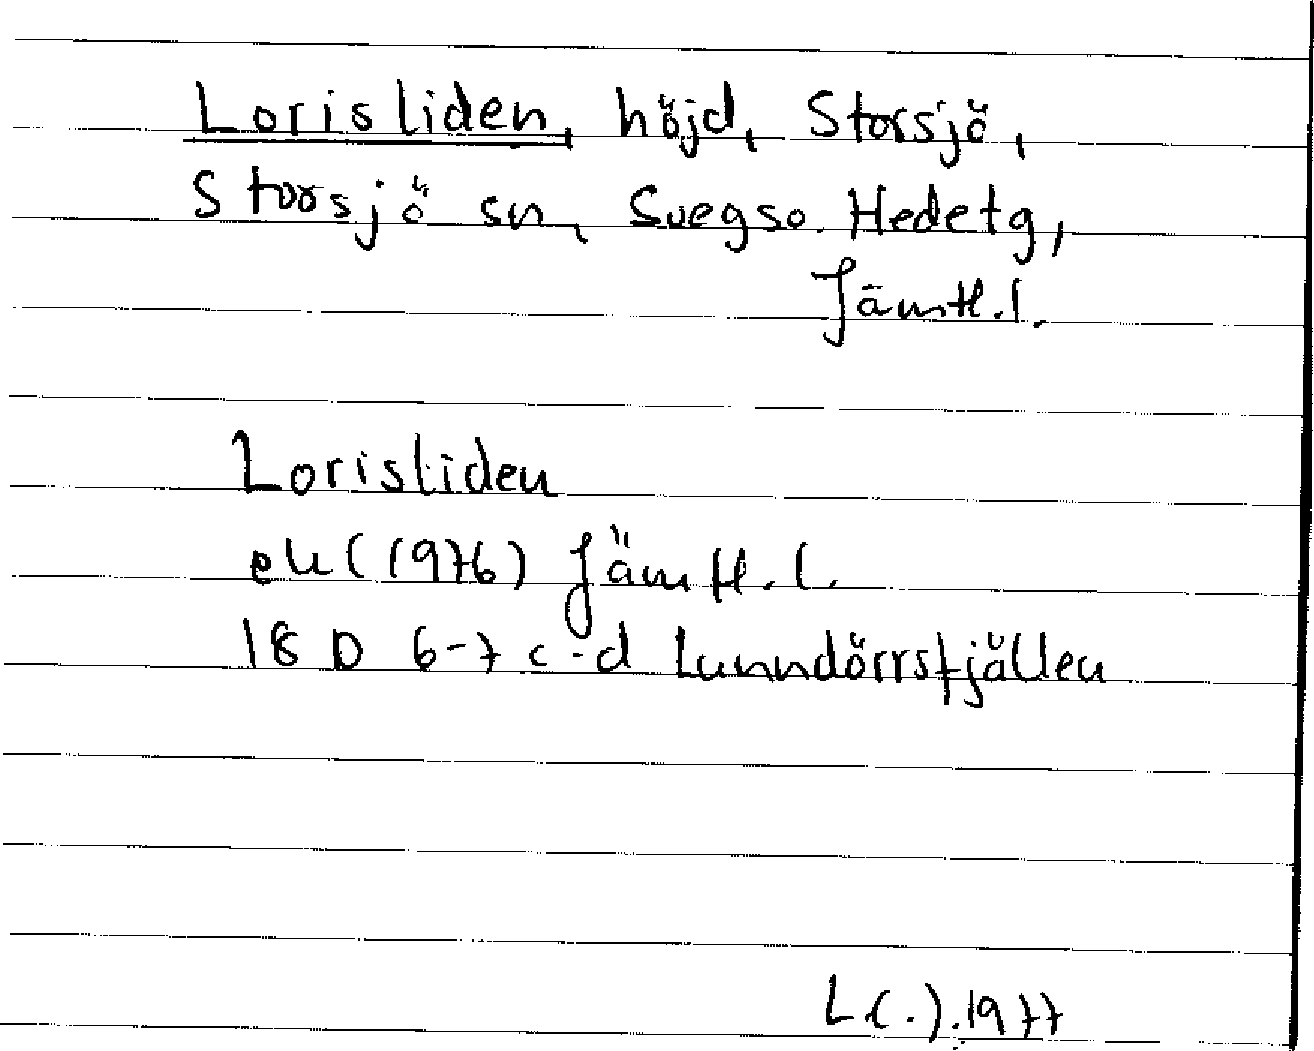 Lorisliden, höjd, Storsjö,
Storsjö sn, Svegs o. Hedetg,
Jämtl. l.
Lorisliden
ek (1976) Jämtl. l.
18 D 6-7 c-d Lunndörrsfjällen
L(.). 1977